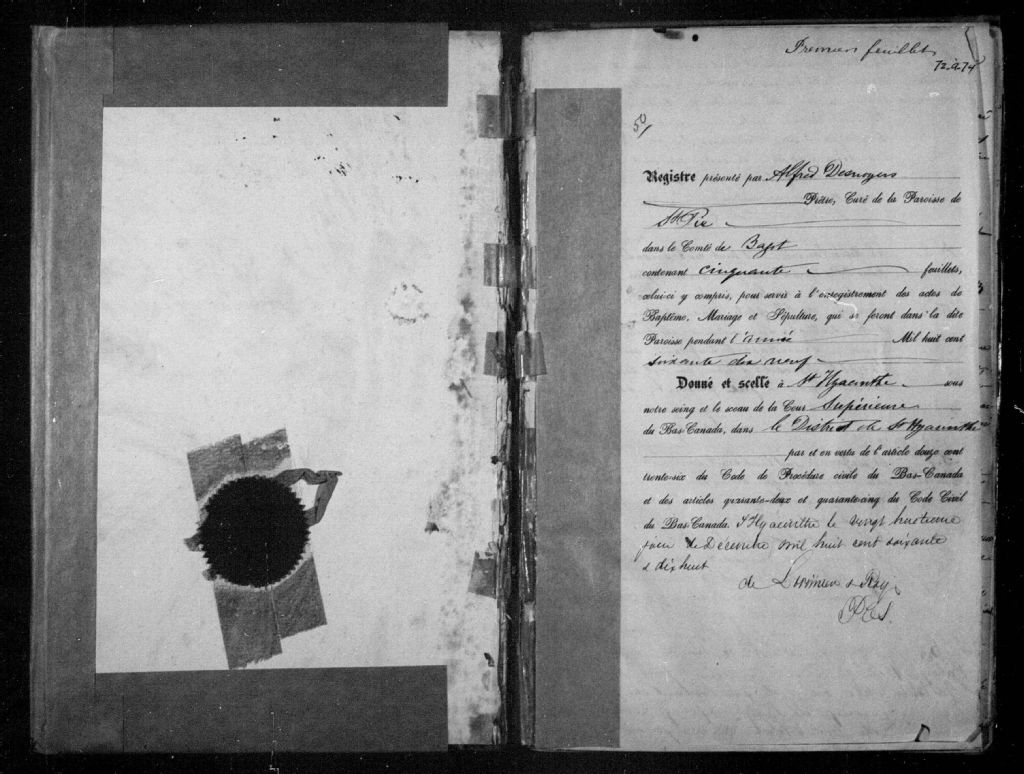 Premier feuillet
72.a.74
50/
Registre présenté par Alfred Desnoyers
Prêtre, Curé de la Paroisse de
St Pie
dans le Comté de Bagot
contenant cinquante feuillets,
celui-ci y compris, pour servir à l'enregistrement des actes de
Baptême, Mariage et Sépulture, qui se feront dans la dite
Paroisse pendant l'année Mil huit cent
soixante dix neuf
Donné et scellé à St Hyacinthe sous
notre seing et le sceau de la Cour Supérieure
du Bas-Canada, dans le District de St Hyacinthe
par et en vertu de l'article douze cent
trente-six du Code de Procédure civile du Bas-Canada
et des articles quarante-deux et quarante-cinq du Code Civil
du Bas-Canada. St Hyacinthe le vingt huitieme
jour de Décembre mil huit cent soixante
& dix huit
de Lorimier & Roy
PCS.